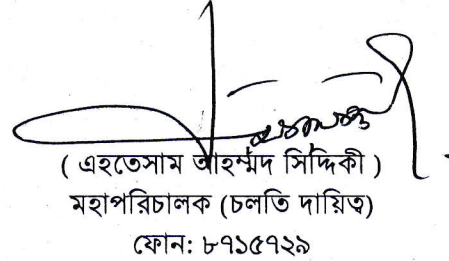 ( এহতেসাম আহম্মদ সিদ্দিকী )
মহাপরিচালক (চলতি দায়িত্ব)
ফোন: ৮৭১৫৭২৯